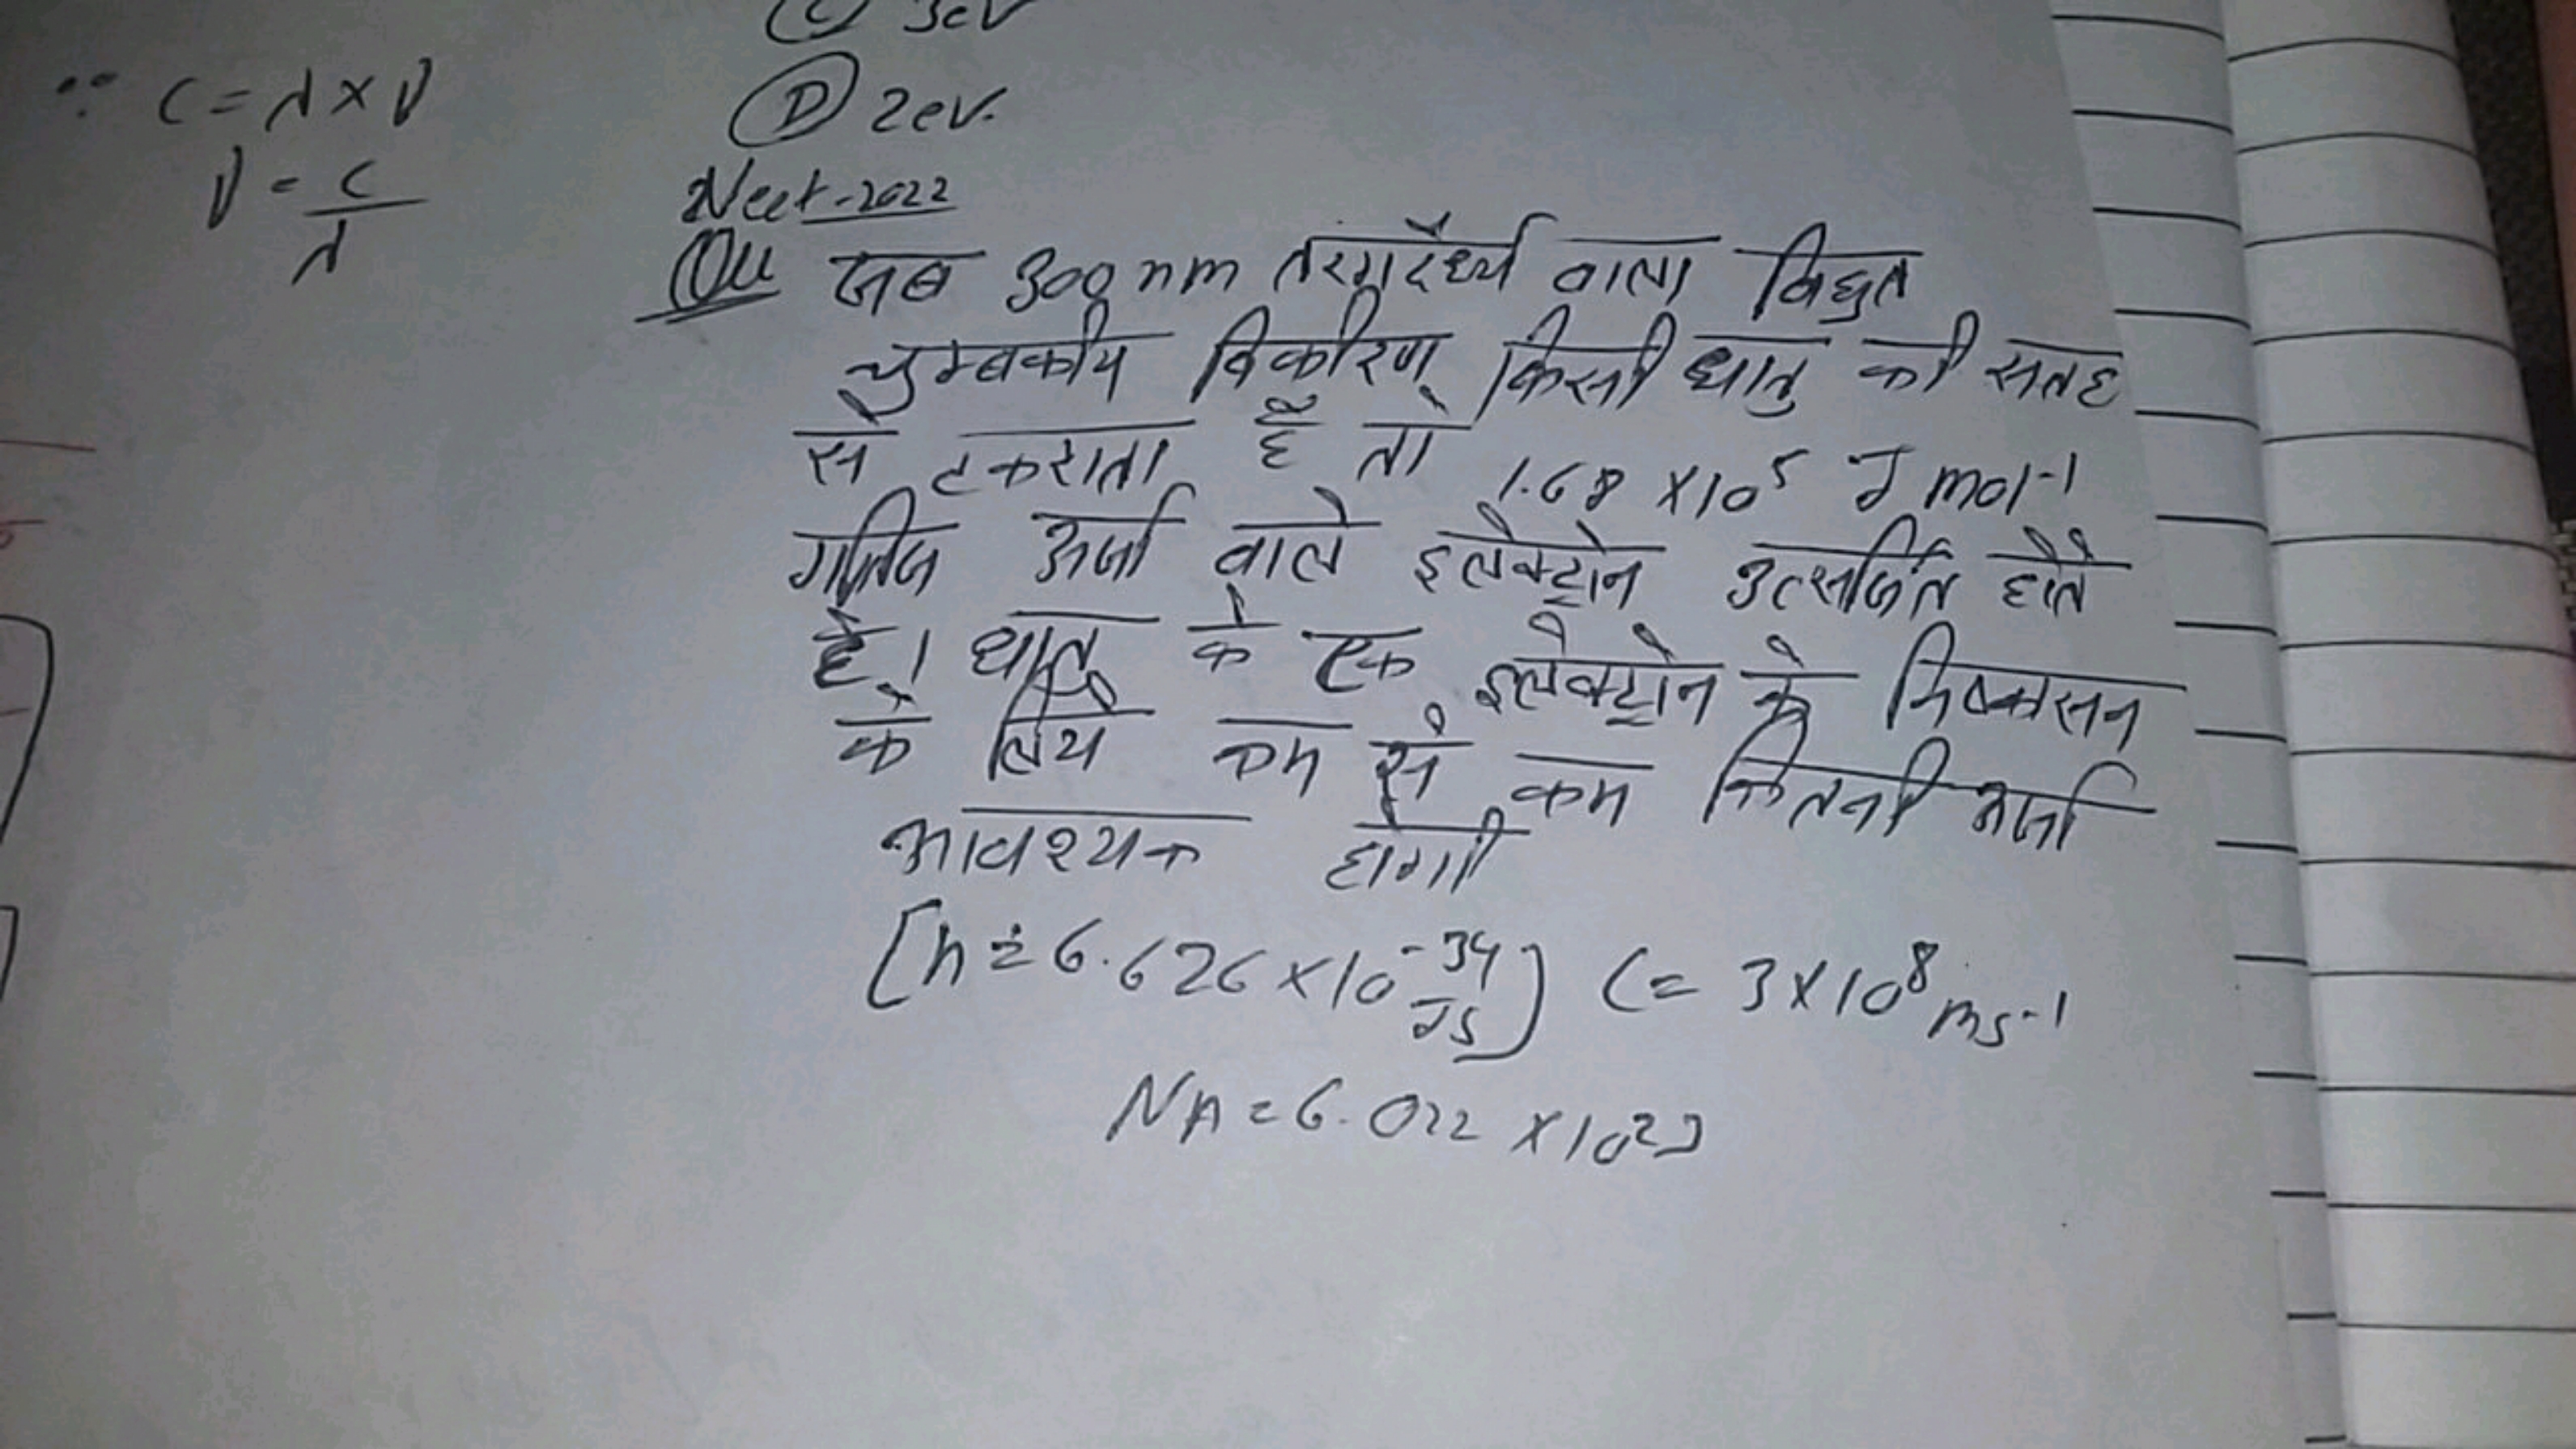 (C) 3eV
∵ C = λ × ν
(D) 2eV.
ν = C/λ
Neet-2022
Qu जब 300 nm तरंगदैर्ध्य वाला विधुत
चुम्बकीय विकीरण किसी धातु की सतह
से टकराता है तो 1.68 × 10⁵ J mol⁻¹
गतिज ऊर्जा वाले इलेक्ट्रोन उत्सर्जित होते
है। धातु के एक इलेक्ट्रोन के निष्कासन
के लिये कम से कम कितनी ऊर्जा
आवश्यक होगी
[h = 6.626 × 10⁻³⁴ Js] C = 3 × 10⁸ ms⁻¹
NA = 6.022 × 10²³